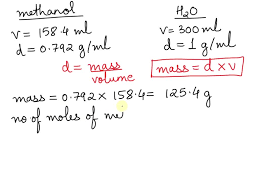 methanol
V = 158.4 ml
d = 0.792 g/ml
H₂O
V = 300 ml
d = 1 g/ml
d = mass / volume
mass = d × V
mass = 0.792 × 158.4 = 125.4 g
no of moles of me